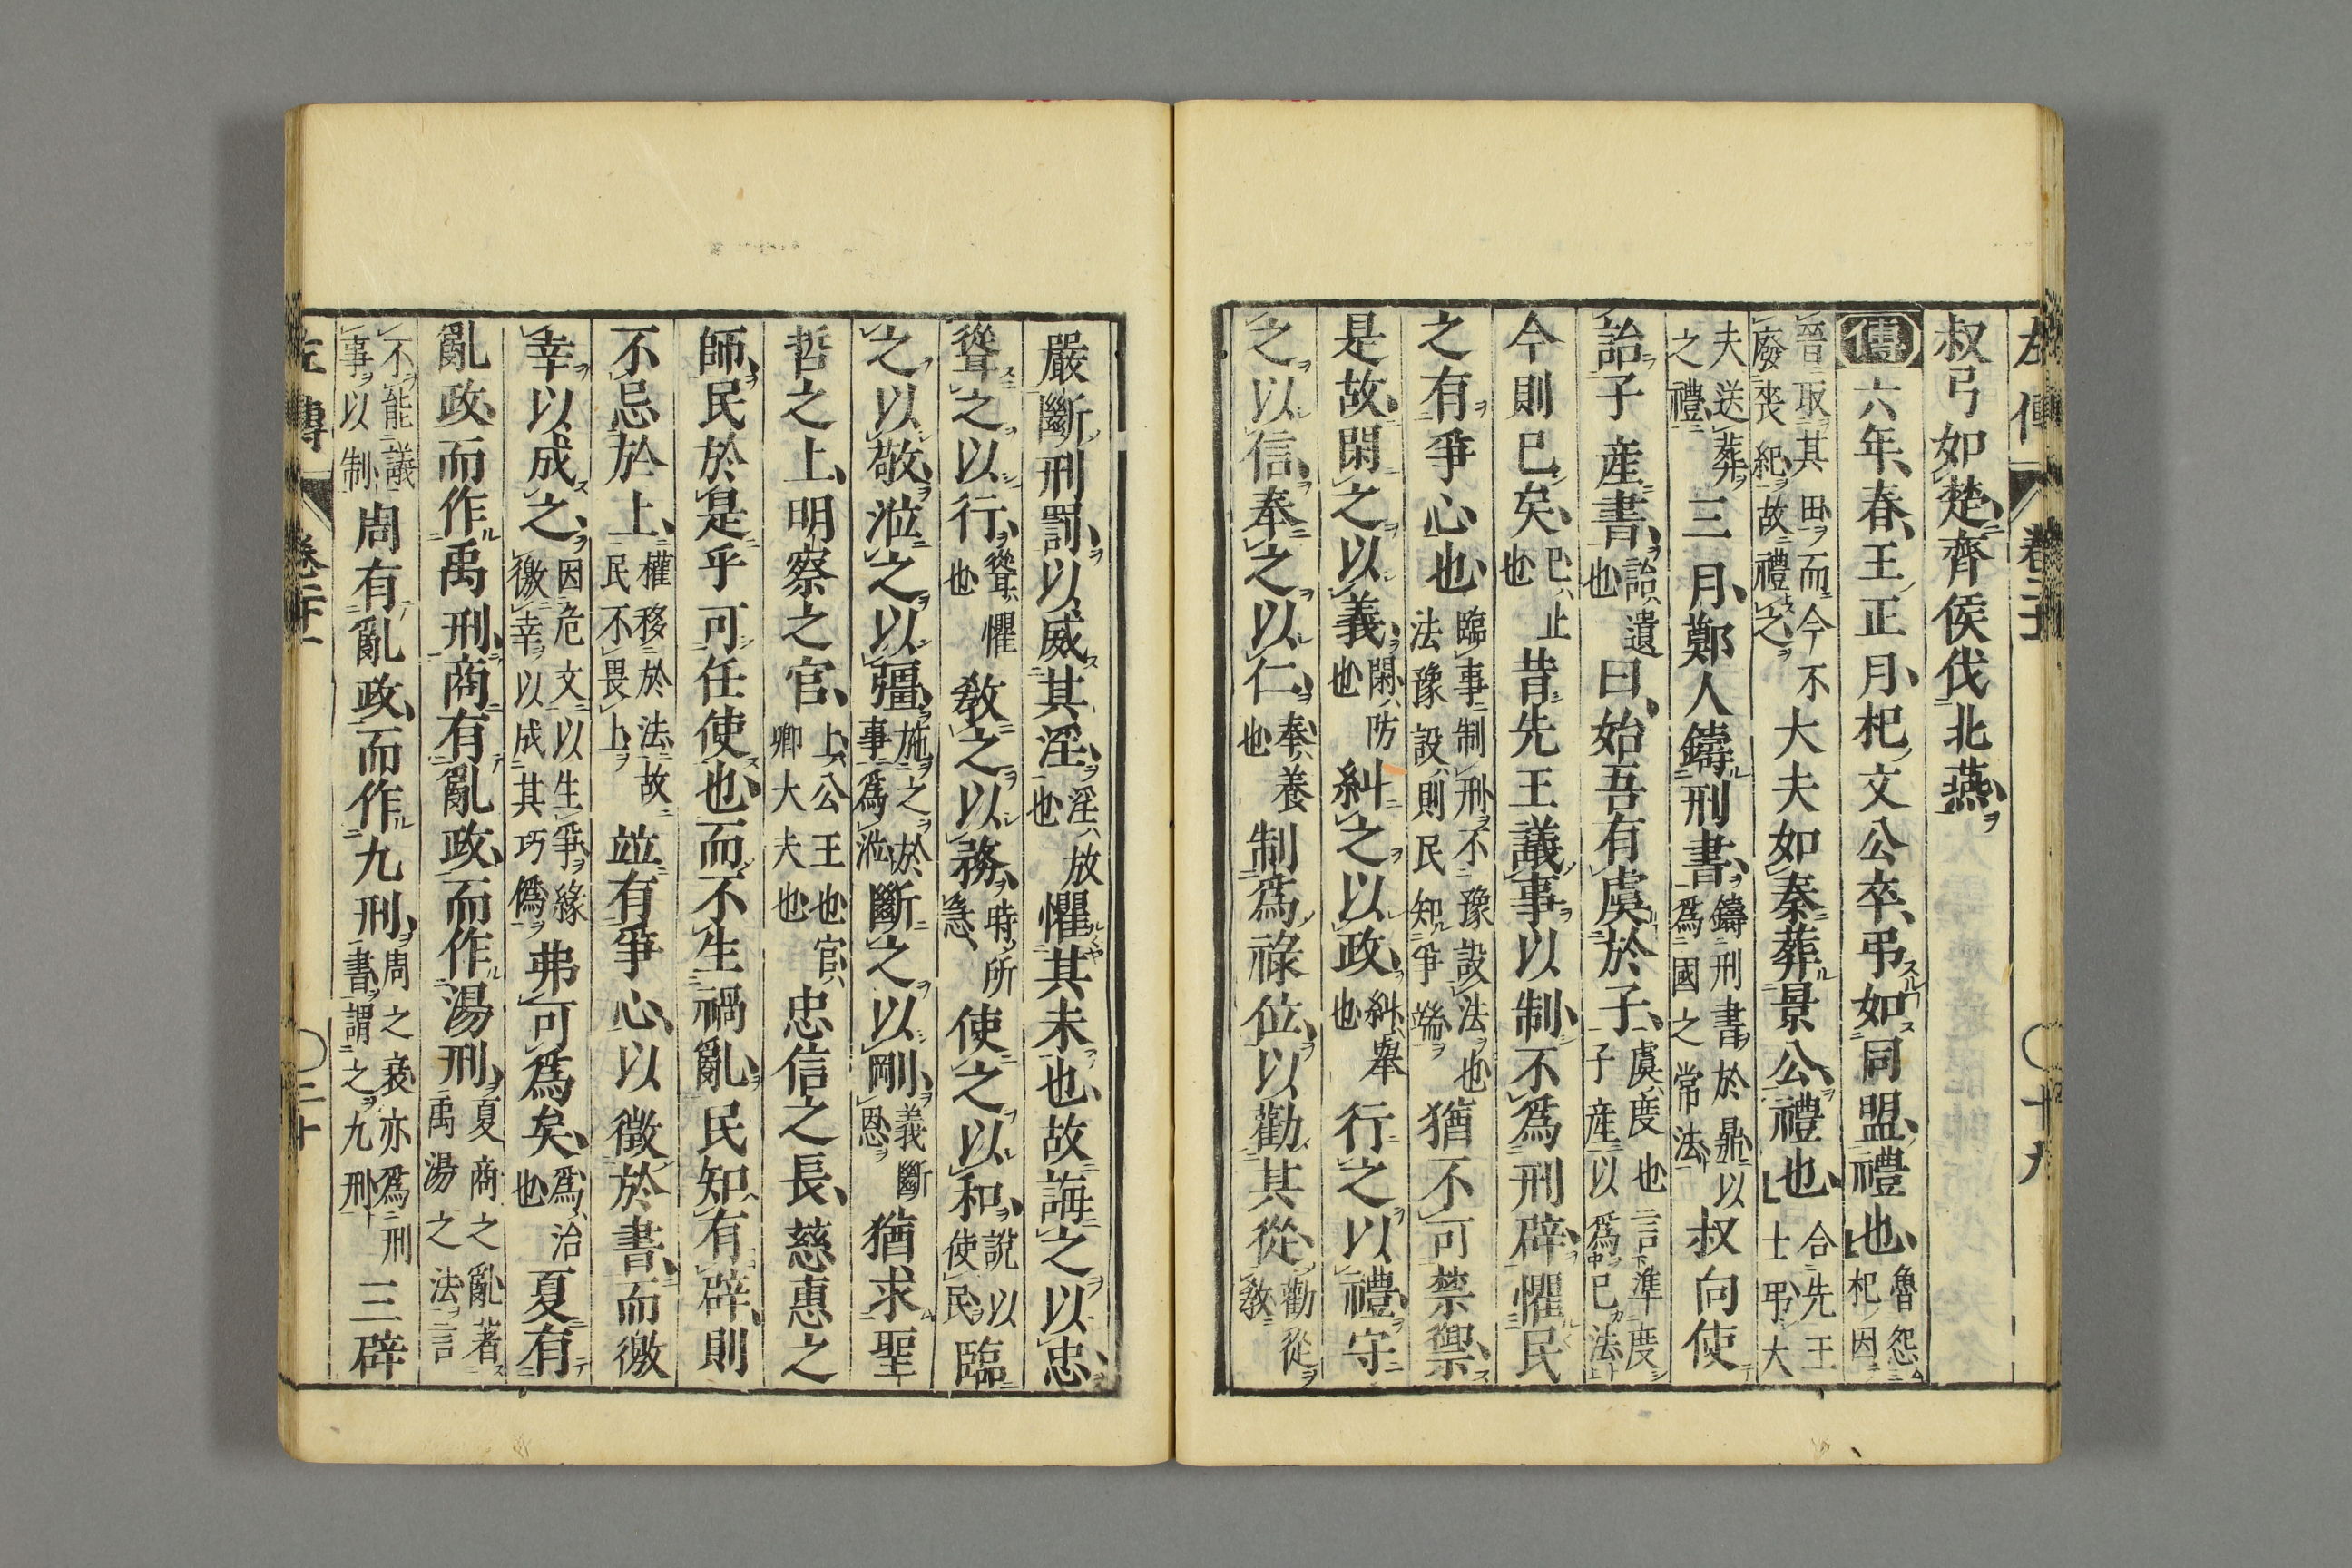 叔弓如楚、齊侯伐北燕、
傳六年、春、王正月、杞文公卒、弔如同盟、禮也、魯怨杞因
晉取其田而今不廢喪紀故禮之大夫如秦葬景公、禮也、合先王士弔大
夫送葬之禮三月、鄭人鑄刑書、鑄刑書於鼎以爲國之常法叔向使
詒子產書、詒遺也曰、始吾有虞於子、虞度也言準度子產以爲己法
今則已矣、已止也昔先王議事以制、不爲刑辟、懼民
之有爭心也、臨事制刑不豫設法也法豫設則民知爭端猶不可禁禦、
是故閑之以義、閑防也糾之以政、糾舉也行之以禮、守
之以信、奉之以仁、奉養也制爲祿位、以勸其從、勸從教
左傳 卷二十一 〇十九
嚴斷刑罰、以威其淫、淫放也懼其未也、故誨之以忠、
聳之以行、聳懼也教之以務、時所急使之以和、說以使民臨
之以敬、涖之以彊、施之於事爲涖斷之以剛、義斷恩猶求聖
哲之上、明察之官、上公王也官卿大夫也忠信之長、慈惠之
師、民於是乎可任使也、而不生禍亂、民知有辟、則
不忌於上、權移於法故民不畏上竝有爭心、以徵於書、而徼
幸以成之、因危文以生爭緣徼幸以成其巧僞弗可爲矣、爲治也夏有
亂政、而作禹刑、商有亂政、而作湯刑、夏商之亂著禹湯之法言
不能議事以制周有亂政、而作九刑、周之衰亦爲刑書謂之九刑三辟
左傳 卷二十一 〇二十